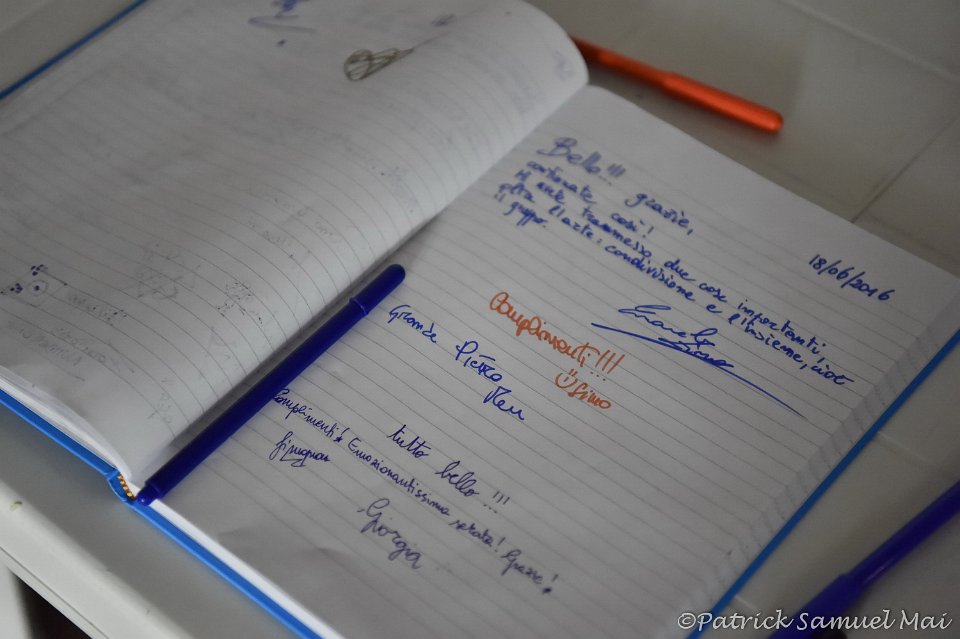 Bello!!! grazie,
continuate così!
Mi avete trasmesso due cose importanti,
oltre l'arte: condivisione e l'insieme, cioè
il gruppo.
18/06/2016
Complimenti!!!
Simo
Grande Pietro
tutto bello!!!
Complimenti! Emozionantissima serata! Grazie!
Giorgia
©Patrick Samuel Mai